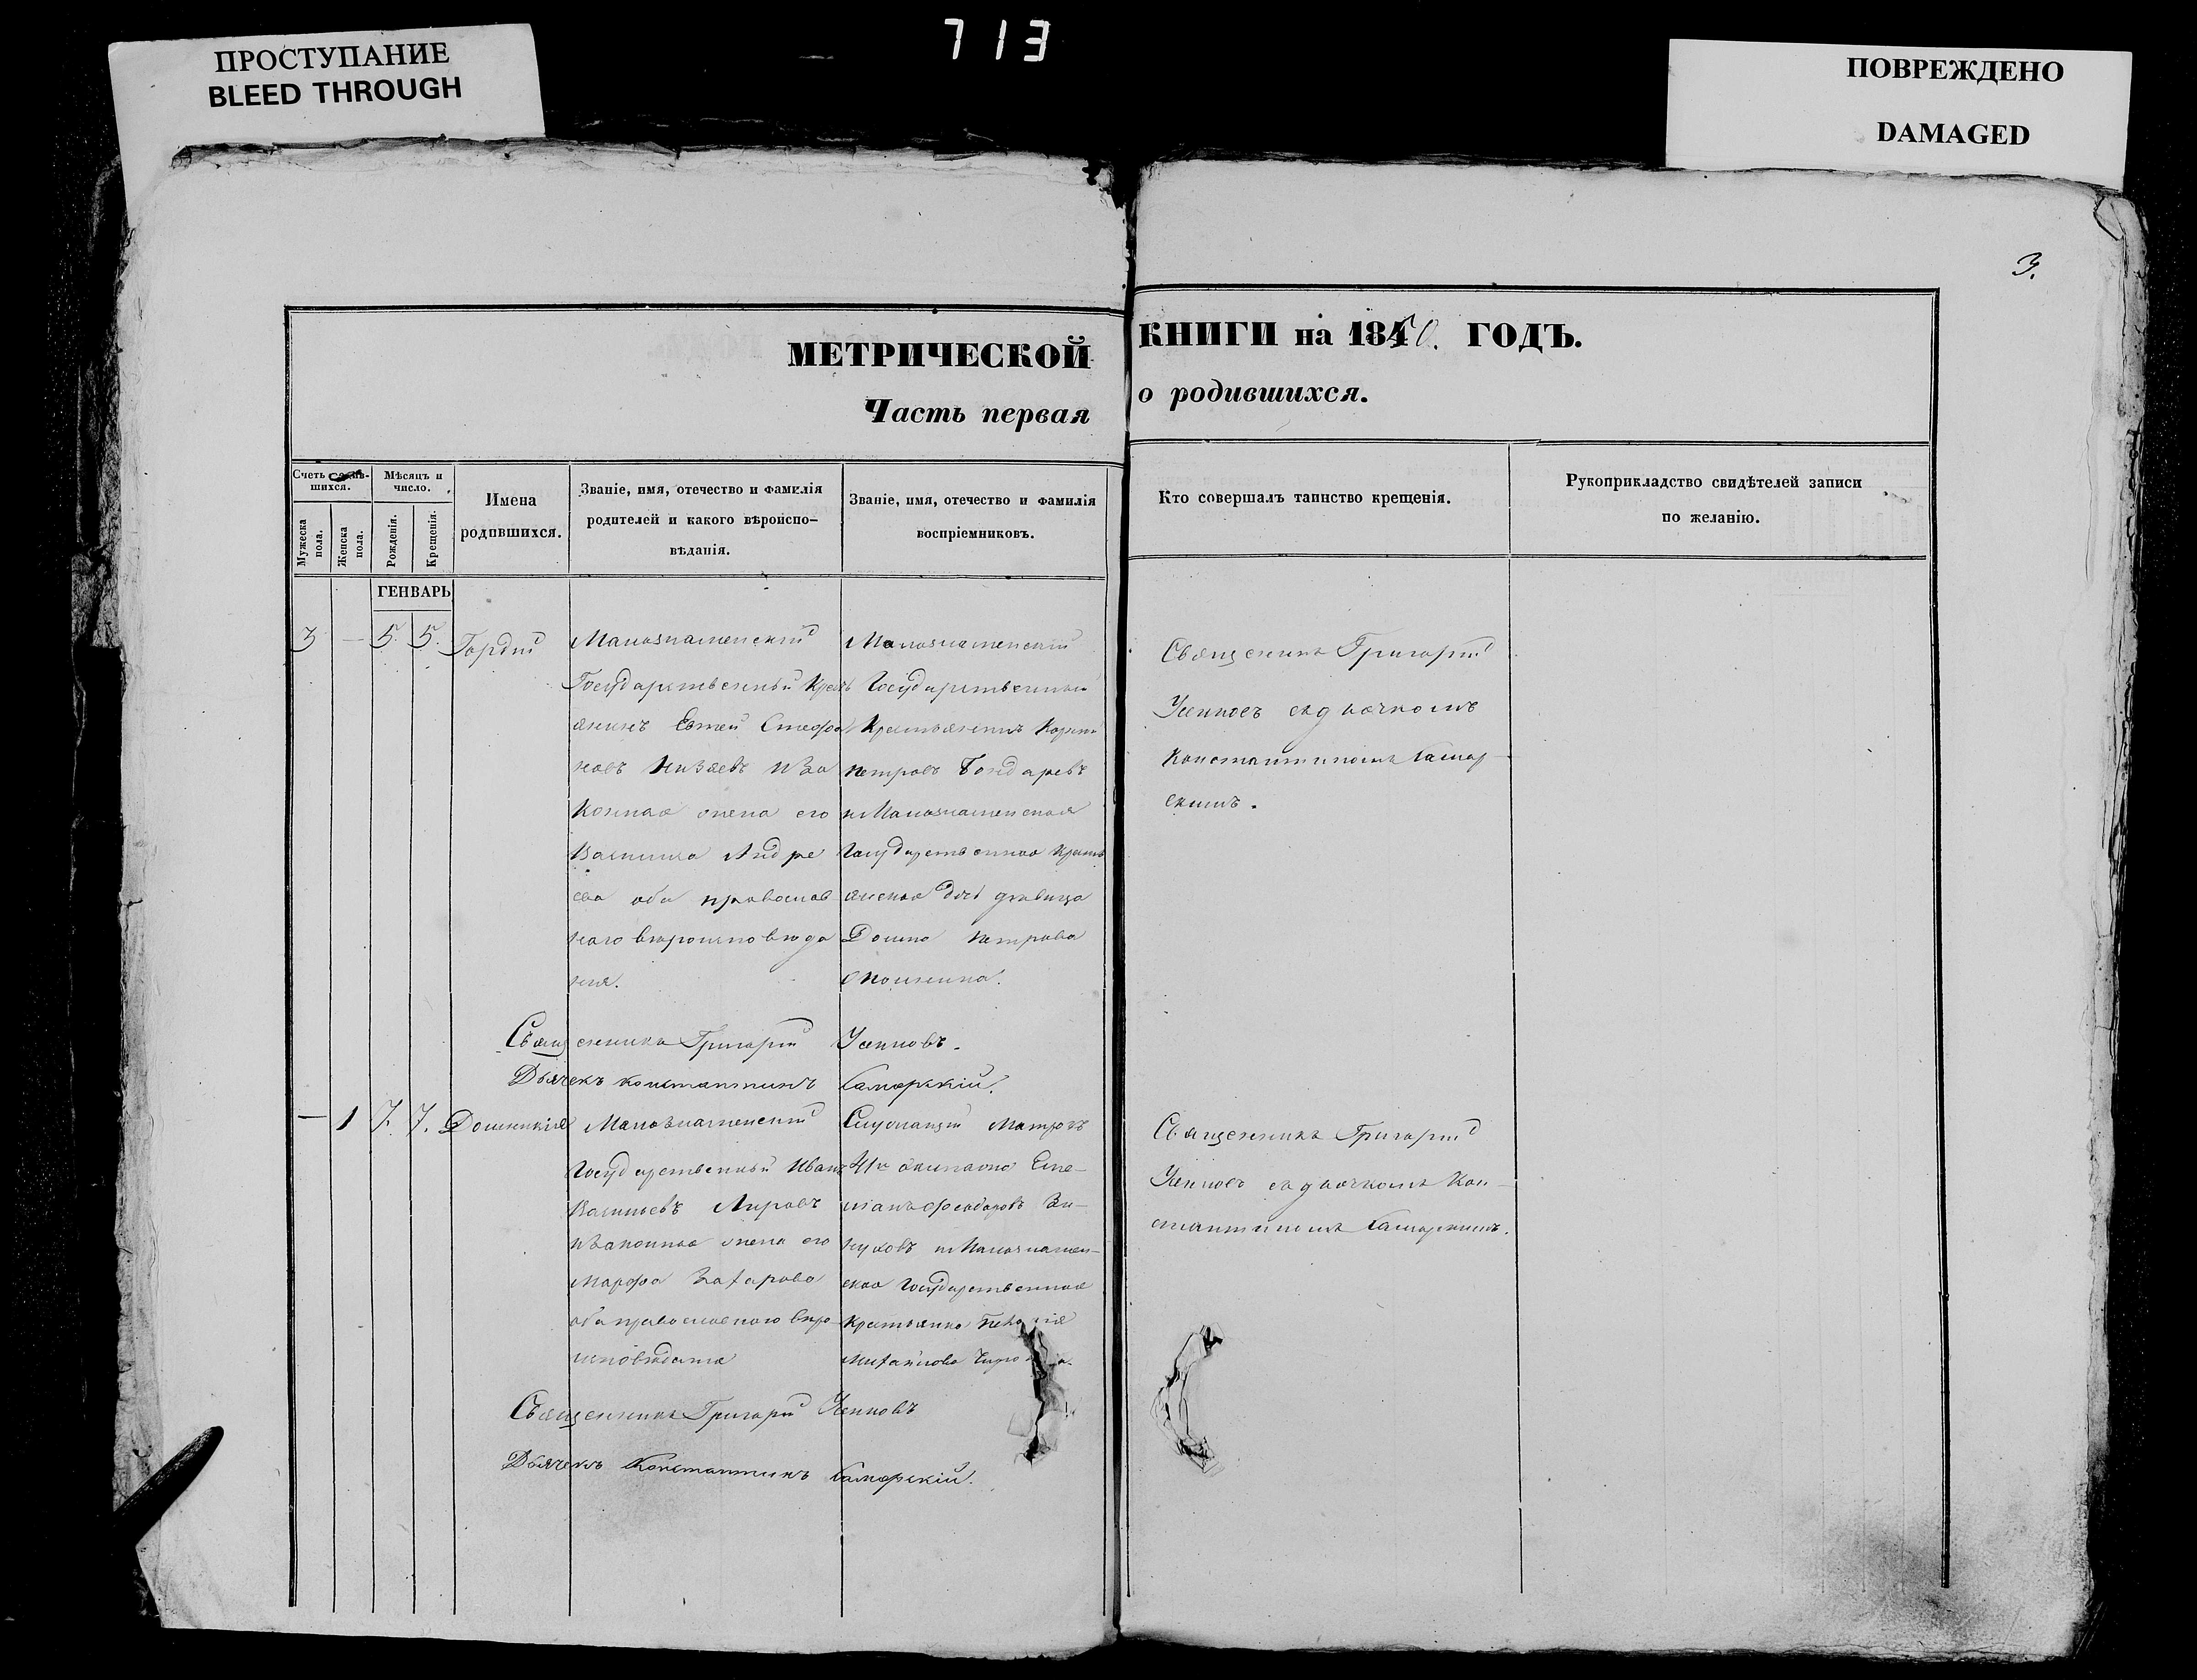 713
ПРОСТУПАНИЕ
BLEED THROUGH
ПОВРЕЖДЕНО
DAMAGED
3.
МЕТРИЧЕСКОЙ КНИГИ на 1850. ГОДЪ.
Часть первая о родившихся.
Счетъ шихся.
Мужеска пола.
Женска пола.
Мѣсяцъ и число.
Рожденія.
Крещенія.
Имена
родившихся.
Званіе, имя, отечество и фамилія
родителей и какого вѣроиспо-
вѣданія.
Званіе, имя, отечество и фамилія
воспріемниковъ.
Кто совершалъ таинство крещенія.
Рукоприкладство свидѣтелей записи
по желанію.
ГЕНВАРЬ
3 — 5. 5. Гордій
Малознаменскій
Государственный Крест
янинъ Евтей Стефа
новъ и за
конная жена его
Василиса Андре
ева оба православ
наго вѣроисповѣда
нія.
Малознаменскій
Государственный
Крестьянинъ
Петровъ Бондаревъ
и Малознаменская
Государственная Крест
янская дочь дѣвица
Домна Петрова
Священникъ Григорій
Усиповъ съ дьячкомъ
Константиномъ Самар
скимъ.
Священникъ Григорій Усиповъ.
Дьячекъ Константинъ Самарскій.
— 1 7. 7. Домникія
Малознаменскій
Государственный Иванъ
Васильевъ
и законная жена его
Марфа Захарова
оба православнаго вѣро
исповѣданія
Служащій Матросъ
41го экипажа Сте-
панъ Феодоровъ
и Малознамен-
ская Государственная
Крестьянка
Михайлова
Священникъ Григорій
Усиповъ съ дьячкомъ Кон-
стантиномъ Самарскимъ.
Священникъ Григорій Усиповъ
Дьячекъ Константинъ Самарскій.